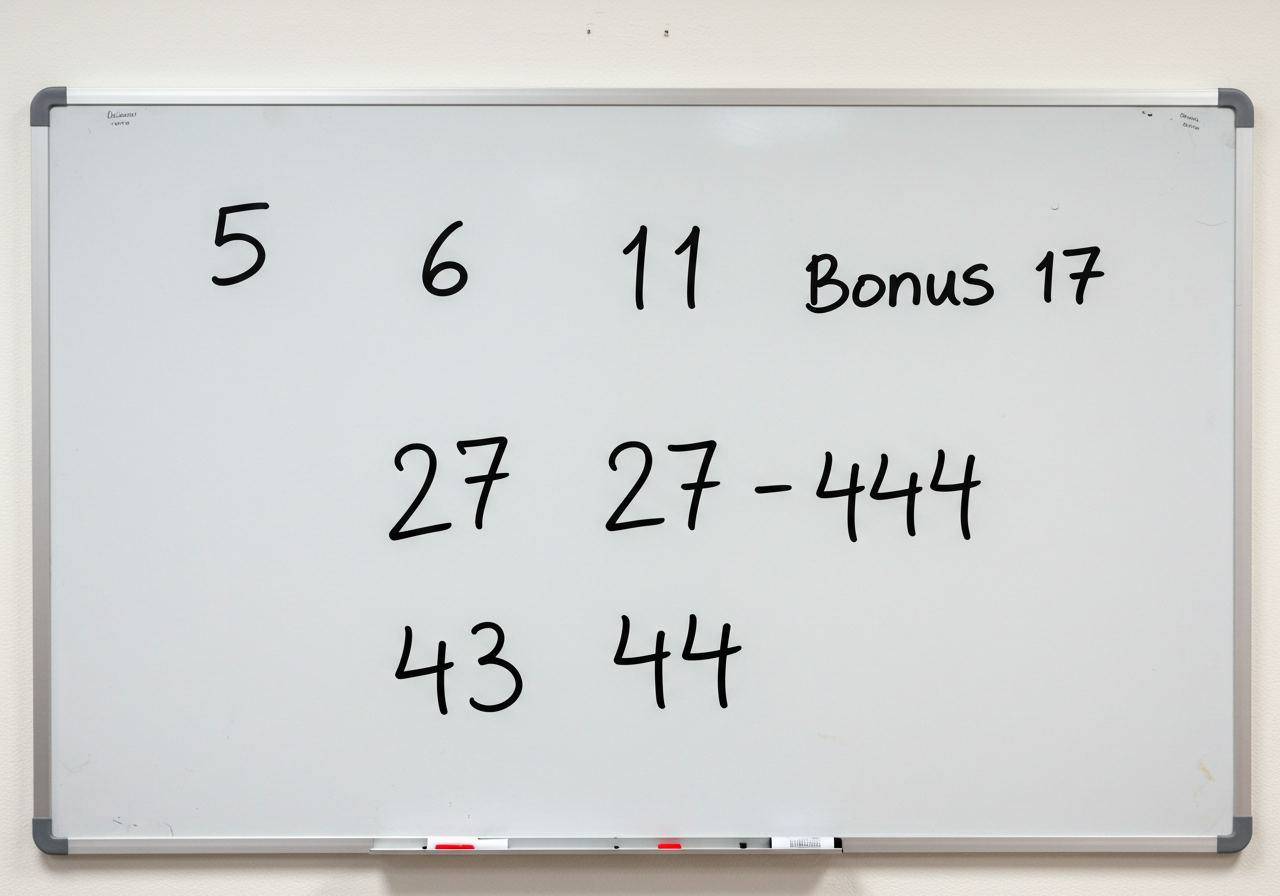 5 6 11 Bonus 17
27 27 - 444
43 44